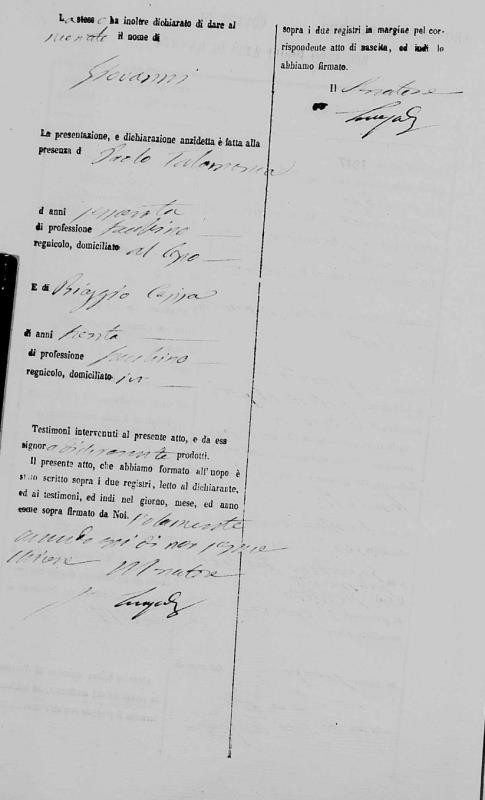 Lo stesso ha inoltre dichiarato di dare al
neonato il nome di
Giovanni
La presentazione, e dichiarazione anzidetta è fatta alla
presenza d Paolo
d anni sessanta
di professione facchino
regnicolo, domiciliato al Capo
E di Biaggio
di anni trenta
di professione facchino
regnicolo, domiciliato ivi
Testimoni intervenuti al presente atto, e da esso
signor dichiarante prodotti.
Il presente atto, che abbiamo formato all'uopo è
stato scritto sopra i due registri, letto al dichiarante,
ed ai testimoni, ed indi nel giorno, mese, ed anno
come sopra firmato da Noi. solamente
avendo essi di non sapere
scrivere Il Senatore
sopra i due registri in margine pel cor-
rispondente atto di nascita, ed indi lo
abbiamo firmato.
Il Senatore